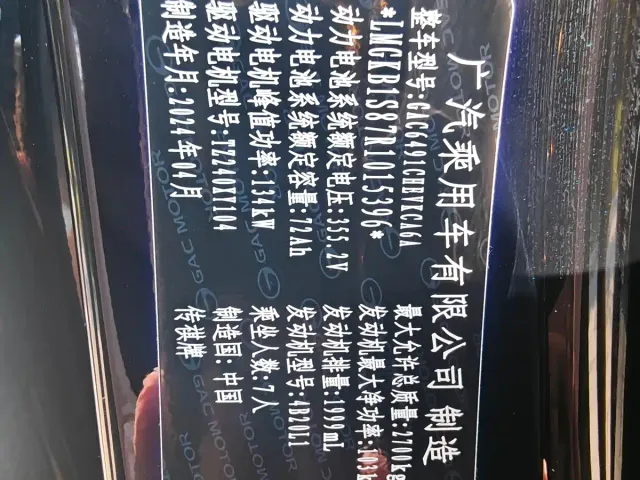 广汽乘用车有限公司 制造
整车型号:GAC6491CHEVCA6A
最大允许总质量:2700kg
*LMGKB1S87R1015396*
发动机最大净功率:103k
动力电池系统额定电压:355.2V
发动机排量:1999mL
动力电池系统额定容量:72Ah
发动机型号:4B20L1
驱动电机峰值功率:134kW
乘坐人数:7人
驱动电机型号:TZ240XY104
制造国:中国
制造年月:2024年04月
传祺牌
GAC MOTOR